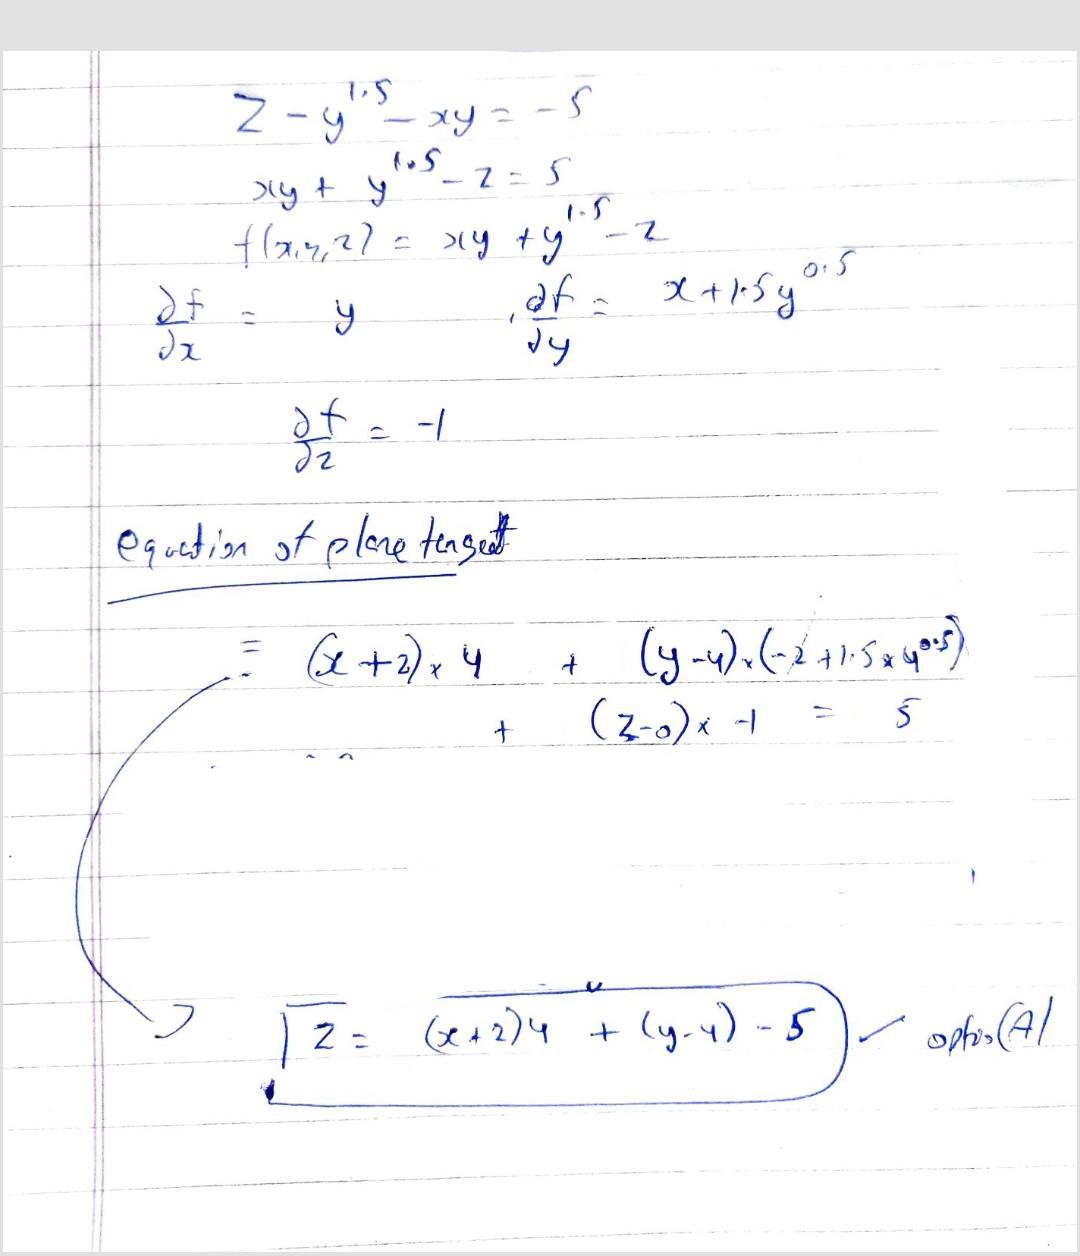 z - y^1.5 - xy = -5
xy + y^1.5 - z = 5
f(x,y,z) = xy + y^1.5 - z
∂f/∂x = y , ∂f/∂y = x + 1.5y^0.5
∂f/∂z = -1
equation of plane tangent
= (x+2)×4 + (y-4)×(-2+1.5×4^0.5)
+ (z-0)×-1 = 5
z = (x+2)4 + (y-4) - 5 ✓ option(A)